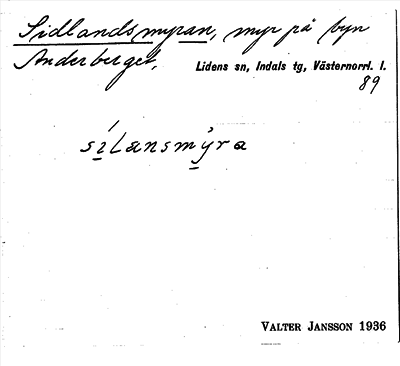 Sidlandsmyran, myr på byn
Anderberget, Lidens sn, Indals tg, Västernorrl. l.
89
sílansmy̌ra
VALTER JANSSON 1936